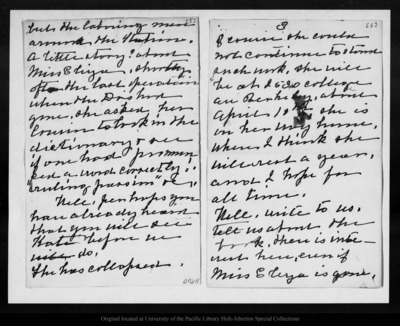 but the laboring men
around the station.
A little story about
Miss Eliza, shortly
after the last operation
when the Drs had
gone, she asked her
cousin to look in the
dictionary & see
if one had pronoun
ced a word correctly,
"ruling passion" &c,
Well, perhaps you
have already heard
that you will see
Kate before we
will do.
She has collapsed.
3
Of course she could
not continue to stand
such work, she will
be at 2530 college
ave Berkeley, about
April 10th she is
on her way home,
where I think she
will rest a year,
and I hope for
all time.
Well, write to us,
tell us about the
book, there is inte-
rest here, even if
Miss Eliza is gone,
Original located at University of the Pacific Library Holt-Atherton Special Collections